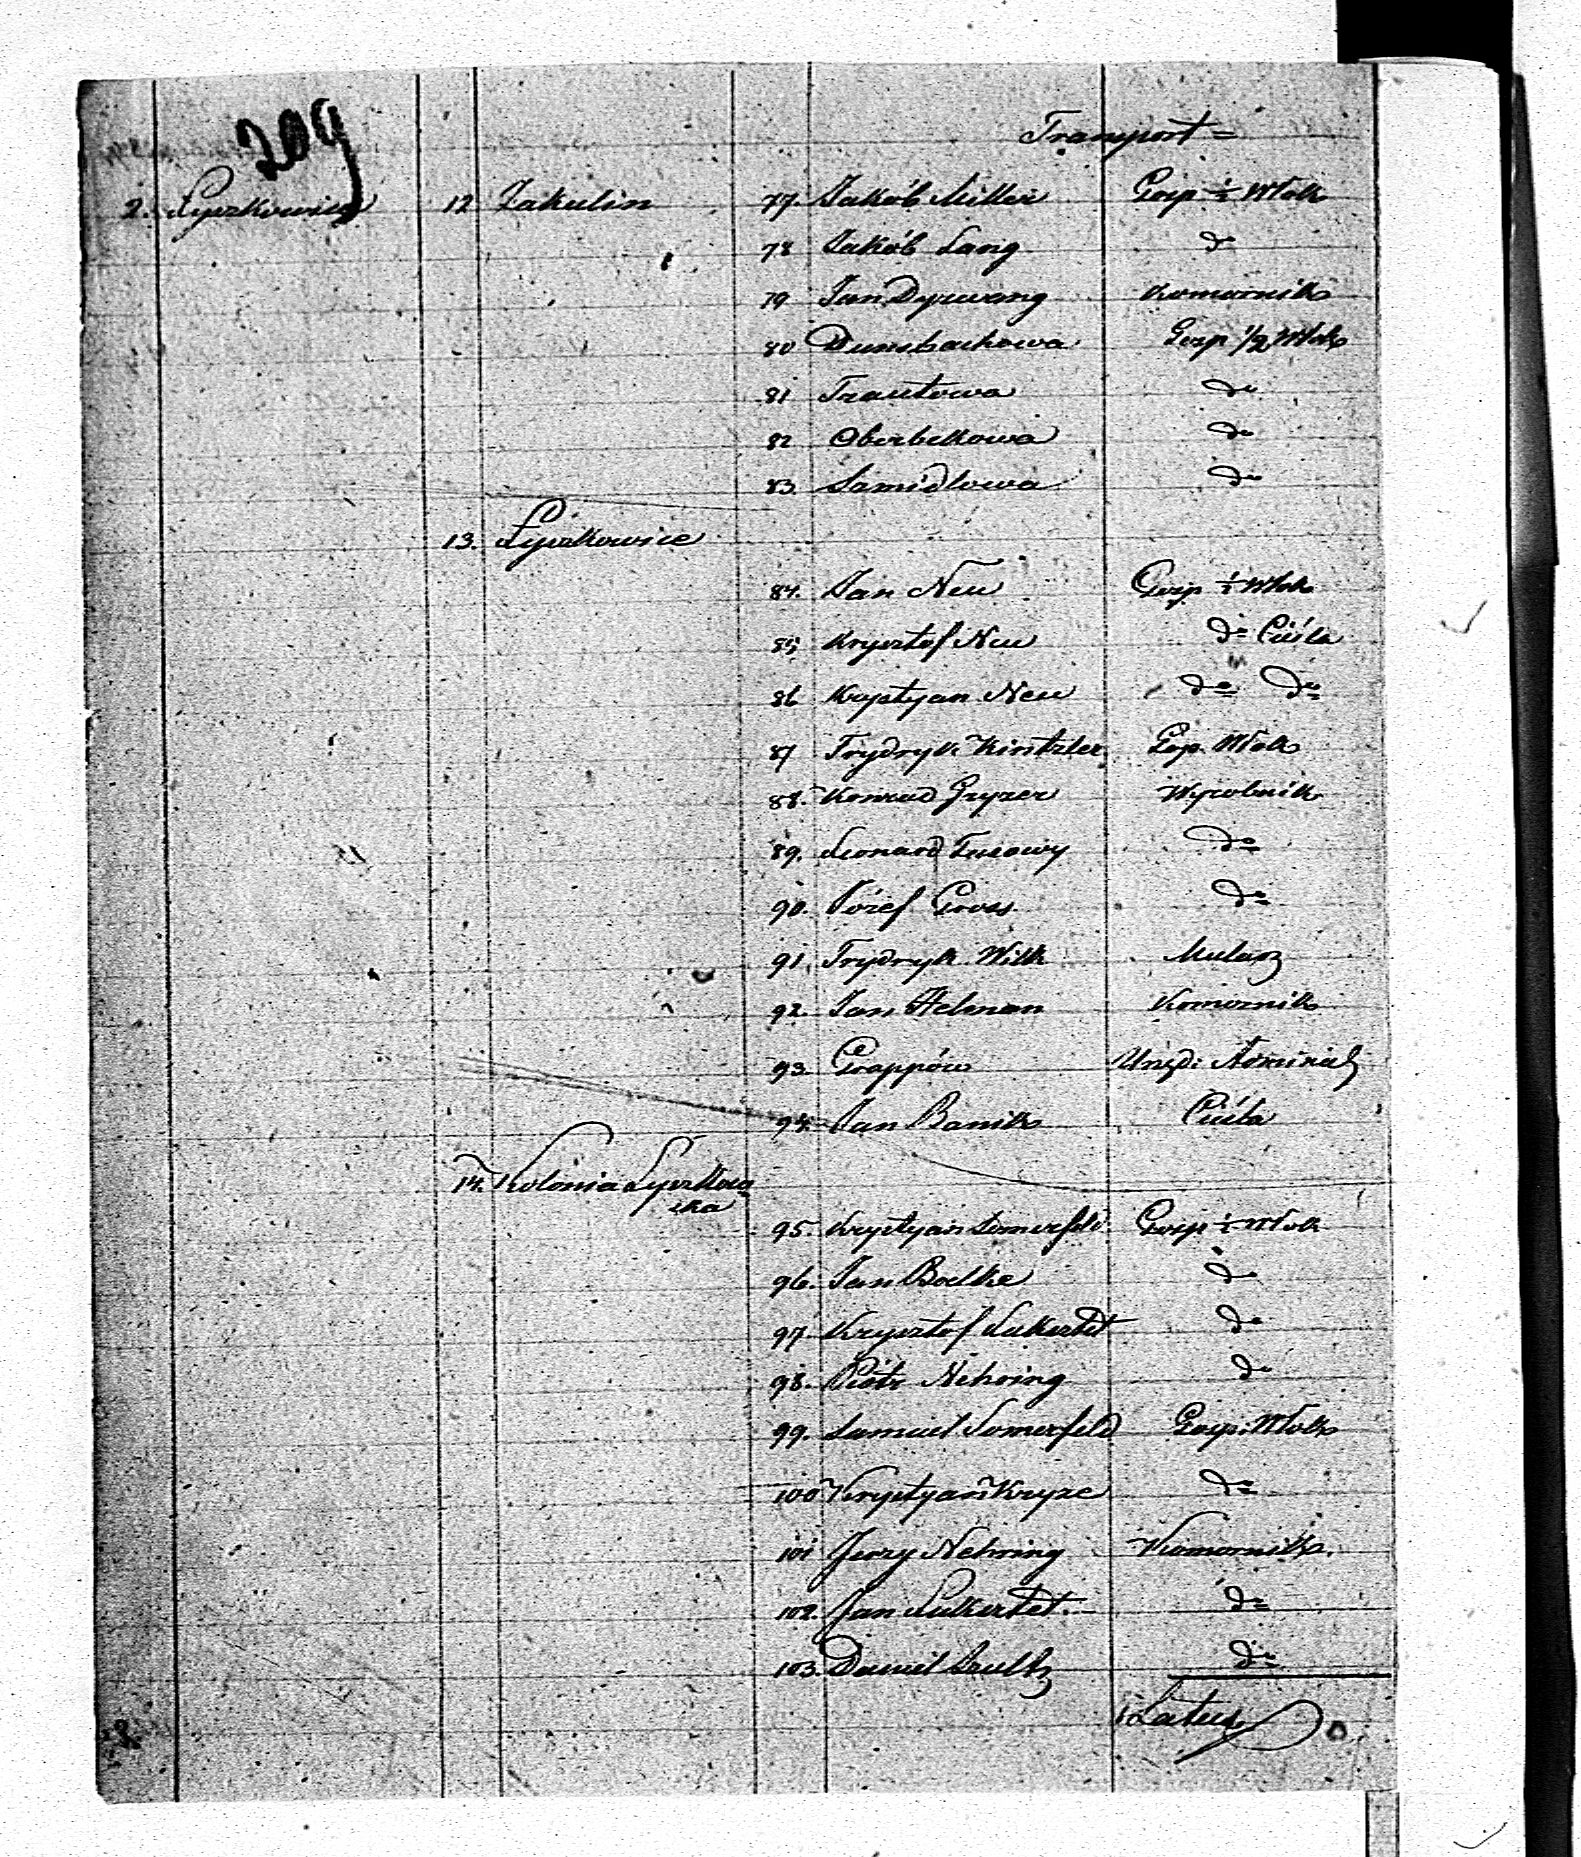 209
Transport =
2. Łyszkowice 12 Zakulin 77. Jakób Miller Gosp ½ Włok
78 Jakób Lang do
79 Jan Dyzwang Komornik
80 Dunsbachowa Gosp 1/2 Włok
81 Trautowa do
82 Oberbekowa do
83. Szmidtowa do
13. Łyszkowice
84. Jan Neu Gosp ½ Włok
85 Krysztof Neu do Cieśla
86 Krystyan Neu do do
87 Frydryk Kintzler Gosp. Włok
88. Konrad Gryzer Wyrobnik
89. Leonard do
90. Józef Gross do
91. Frydryk Wilk Mularz
92. Jan Helman Komornik
93. Grappów Urzęd:
94. Jan Banik Cieśla
14. Kolonia Łyszkow
ska
95. Krystyan Somerfeld Gosp ½ Włok
96. Jan Boelke do
97. Krysztof Lukertet do
98. Piotr Nehring do
99. Samuel Somerfeld Gosp. Włok
100 Krystyan Kryze do
101 Jerzy Nehring Komornik.
102. Jan Lukertet. do
103. Daniel Szultz do
Latus